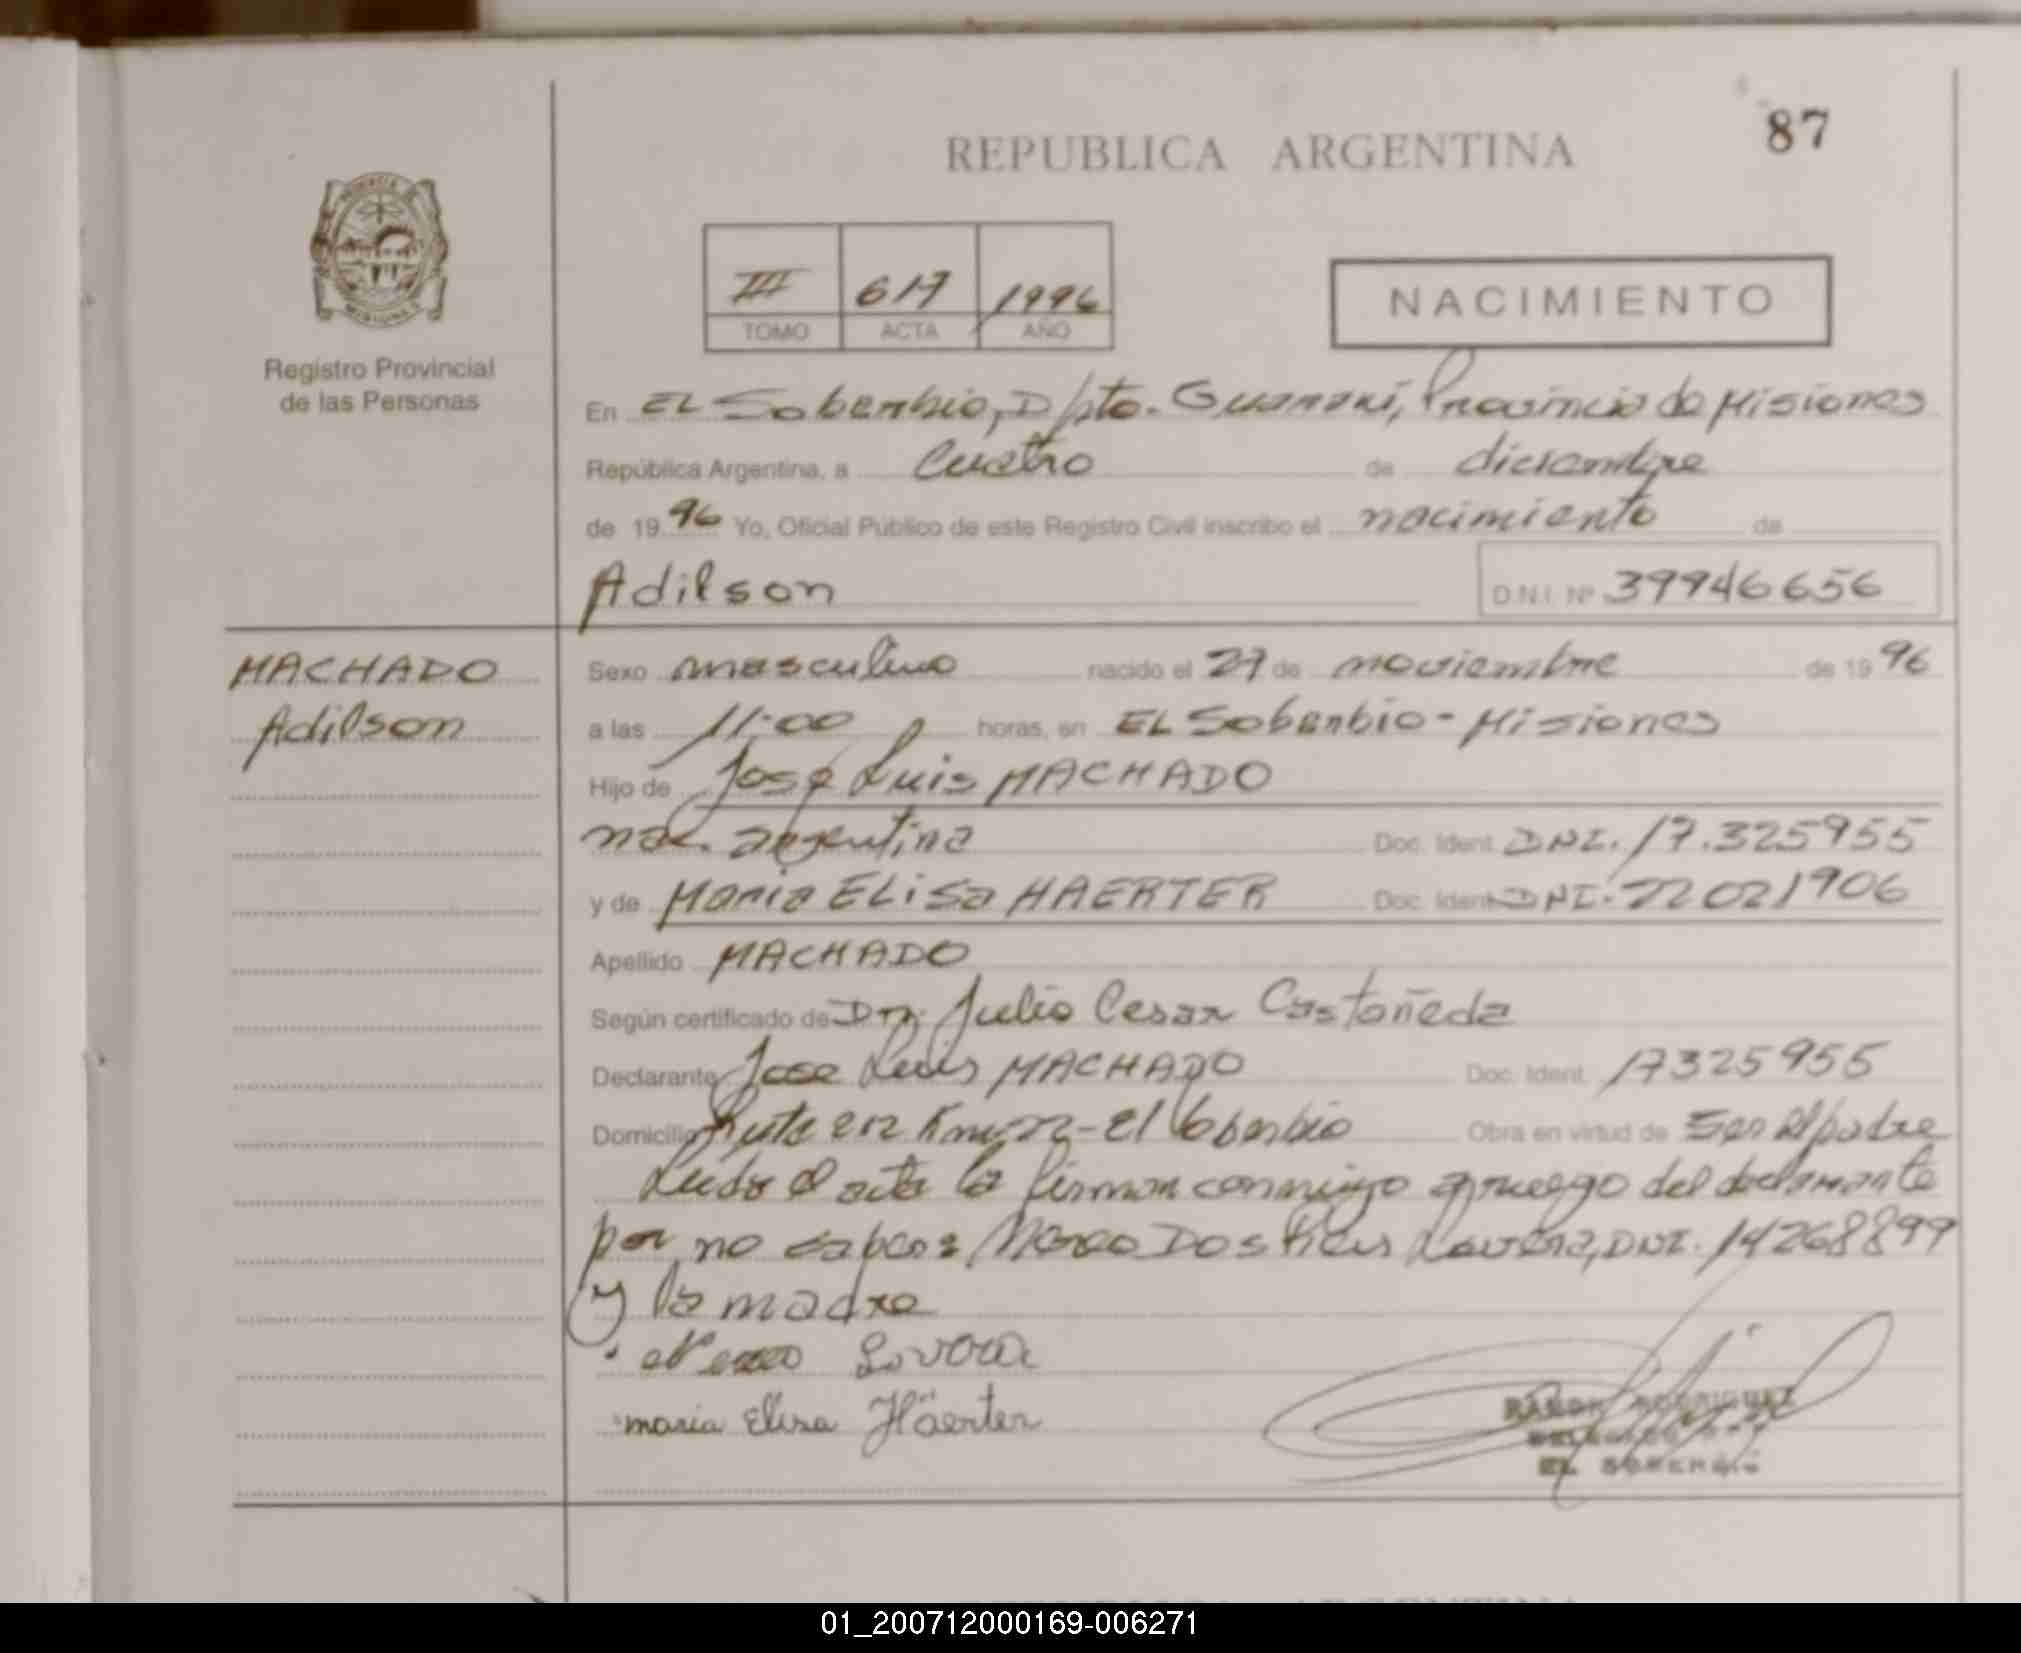 87
REPUBLICA ARGENTINA
III 617 1996
TOMO ACTA AÑO
NACIMIENTO
Registro Provincial
de las Personas
En EL Soberbio, D/pto. Guaraní, Provincia de Misiones
República Argentina, a Cuatro de diciembre
de 19 96 Yo, Oficial Público de este Registro Civil inscribo el nacimiento de
Adilson D.N.I. Nº 39946656
MACHADO
Adilson
Sexo masculino nacido el 27 de noviembre de 19 96
a las 11:00 horas, en EL Soberbio - Misiones
Hijo de José Luis MACHADO
nac. argentina Doc. Ident. DNI. 17.325955
y de Maria ELisa HAERTER Doc. Ident. DNI. 22021906
Apellido MACHADO
Según certificado de Dr. Julio Cesar Castañeda
Declarante Jose Luis MACHADO Doc. Ident. 17325955
Domicilio Ruta 212 - El Soberbio Obra en virtud de Ser el padre
Leida el acta la firman conmigo a ruego del declarante
por no saber Dos Reis DNI. 14268899
y la madre
maria Elisa Häerter
RAMON RODRIGUEZ
EL SOBERBIO
01_200712000169-006271